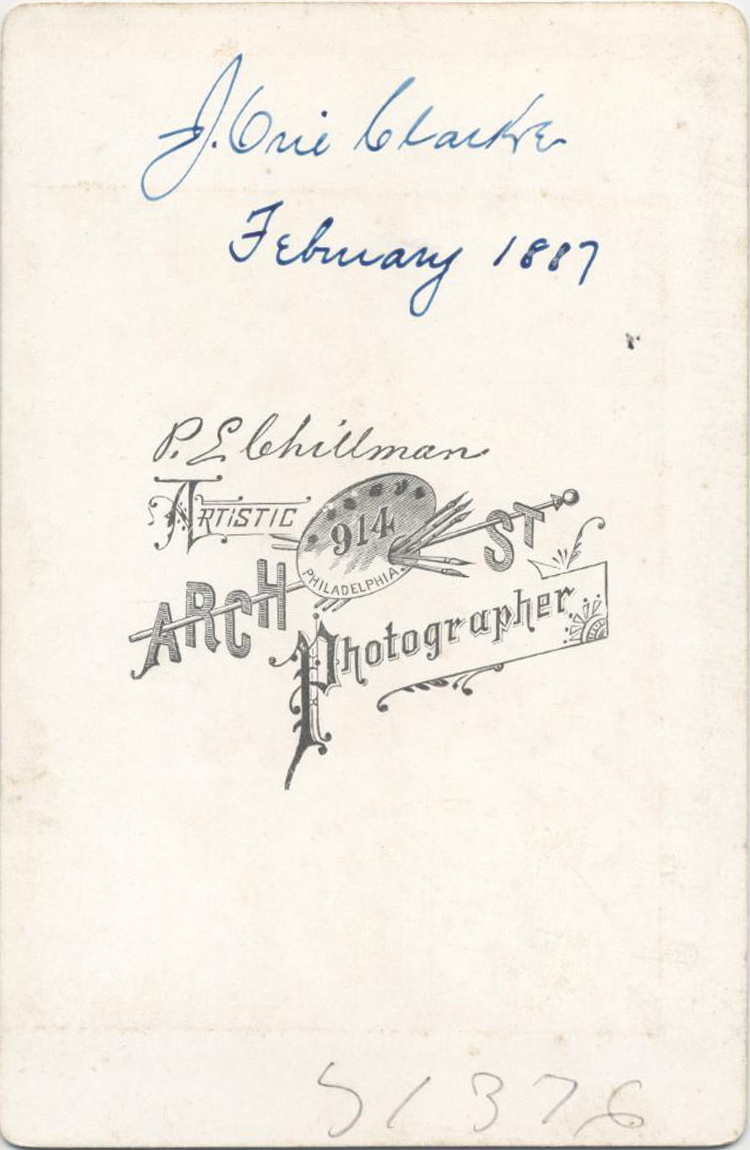 J. Orie Clarke
February 1887
P. E. Chillman
ARTISTIC
914
PHILADELPHIA
ARCH ST
Photographer
51376